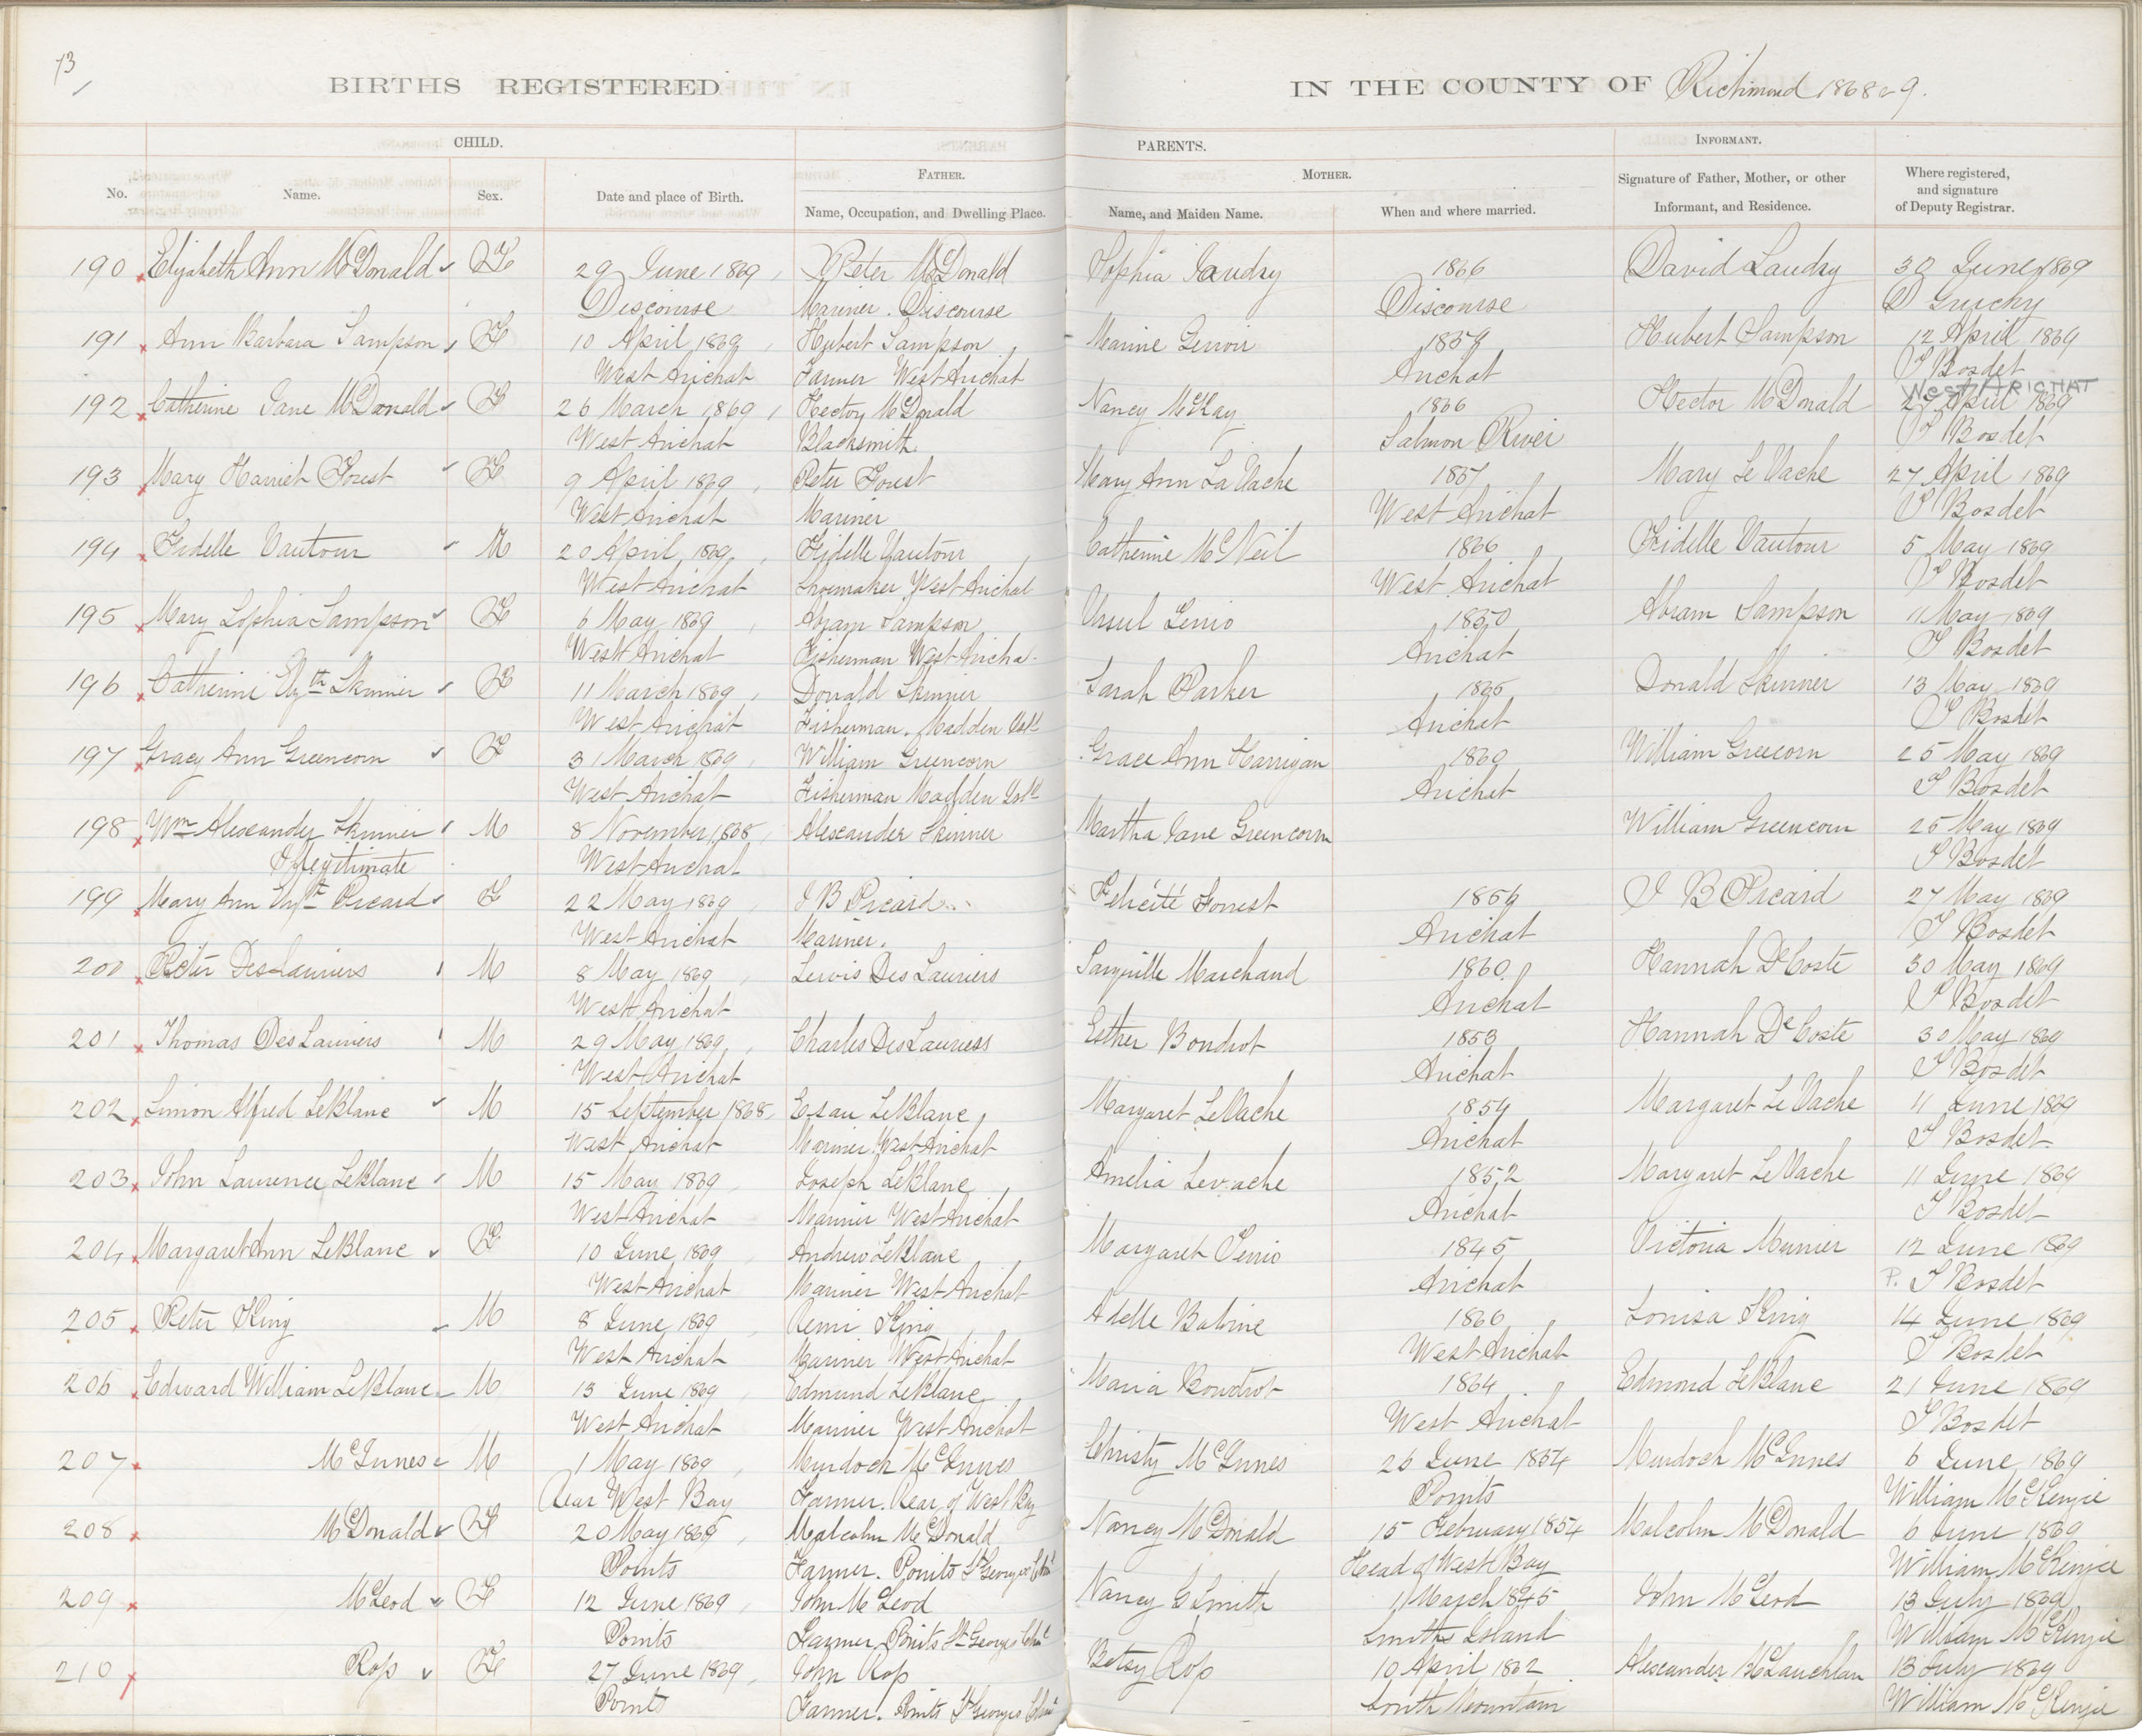 73
BIRTHS REGISTERED IN THE COUNTY OF Richmond 1868 & 9.
CHILD. PARENTS. INFORMANT.
FATHER. MOTHER.
No. Name. Sex. Date and place of Birth. Name, Occupation, and Dwelling Place. Name, and Maiden Name. When and where married. Signature of Father, Mother, or other Informant, and Residence. Where registered, and signature of Deputy Registrar.
190 Elizabeth Ann McDonald F 29 June 1869 Peter McDonald Sophia Landry 1866 David Landry 30 June 1869
Discourse Mariner. Discourse Discourse D Gruchy
191 Ann Barbara Sampson F 10 April 1869 Hubert Sampson Marine Lenoir 1859 Hubert Sampson 12 April 1869
West Arichat Farmer West Arichat Arichat Bosdet
WEST ARICHAT
192 Catherine Jane McDonald F 26 March 1869 Hector McDonald Nancy McKay 1866 Hector McDonald 27 April 1869
West Arichat Blacksmith Salmon River Bosdet
193 Mary Harriet Forest F 9 April 1869 Peter Forest Mary Ann LaVache 1857 Mary Le Vache 27 April 1869
West Arichat Mariner West Arichat Bosdet
194 Fidelle Vautour M 20 April 1869 Fidelle Vautour Catherine McNeil 1866 Fidelle Vautour 5 May 1869
West Arichat Shoemaker West Arichat West Arichat Bosdet
195 Mary Sophia Sampson F 6 May 1869 Abram Sampson Ursul 1850 Abram Sampson 11 May 1869
West Arichat Fisherman West Aricha Arichat Bosdet
196 Catherine Elzth Skinner F 11 March 1869 Donald Skinner Sarah Parker Donald Skinner 13 May 1869
West Arichat Fisherman. Madden Arichat Bosdet
197 Gracy Ann Greencorn F 31 March 1869 William Greencorn Grace Ann Harrigan 1860 William Greecorn 25 May 1869
West Arichat Fisherman Madden Arichat Bosdet
198 Wm Alexander Skinner M 8 November 1868 Alexander Skinner Martha Jane Greencorn William Greencorn 25 May 1869
Illegitimate West Arichat Bosdet
199 Mary Ann Picard F 22 May 1869 J B Picard Felicité Forrest J B Picard 27 May 1869
West Arichat Mariner. Arichat Bosdet
200 Peter DesLauriers M 8 May 1869 Lewis DesLauriers Marchand 1860 Hannah DeCoste 30 May 1869
West Arichat Arichat Bosdet
201 Thomas DesLauriers M 29 May 1869 Charles DesLauriers Esther Boudrot 1853 Hannah DeCoste 30 May 1869
West Arichat Arichat Bosdet
202 Simon Alfred LeBlanc M 15 September 1868 Esau LeBlanc Margaret LeVache 1854 Margaret LeVache 11 June 1869
West Arichat Mariner West Arichat Arichat Bosdet
203 John Laurence LeBlanc M 15 May 1869 Joseph LeBlanc Amelia Levache 1852 Margaret LeVache 11 June 1869
West Arichat Mariner West Arichat Arichat Bosdet
204 Margaret Ann LeBlanc F 10 June 1869 Andrew LeBlanc Margaret 1845 Victoria Munier 12 June 1869
West Arichat Mariner West Arichat Arichat P. Bosdet
205 Peter King M 8 June 1869 Remi King Adelle Babine 1860 Louisa King 14 June 1869
West Arichat Mariner West Arichat West Arichat Bosdet
206 Edward William LeBlanc M 13 June 1869 Edmund LeBlanc Maria Boudrot 1864 Edmond LeBlanc 21 June 1869
West Arichat Mariner West Arichat West Arichat Bosdet
207 McInnes M 1 May 1869 Murdoch McInnes Christy McInnes 26 June 1854 Murdoch McInnes 6 June 1869
Rear West Bay Farmer. Rear of West Bay Points William McKenzie
208 McDonald F 20 May 1869 Malcolm McDonald Nancy McDonald 15 February 1854 Malcolm McDonald 6 June 1869
Points Farmer. Points St Georges Chal Head of West Bay William McKenzie
209 McLeod F 12 June 1869 John McLeod Nancy G Smith 11 March 1845 John McLeod 13 July 1869
Points Farmer Points St Georges Chal Smiths Island William McKenzie
210 Ross F 27 June 1869 John Ross Betsy Ross 10 April 1862 Alexander McLauchlan 13 July 1869
Points Farmer. Points St Georges South Mountain William McKenzie